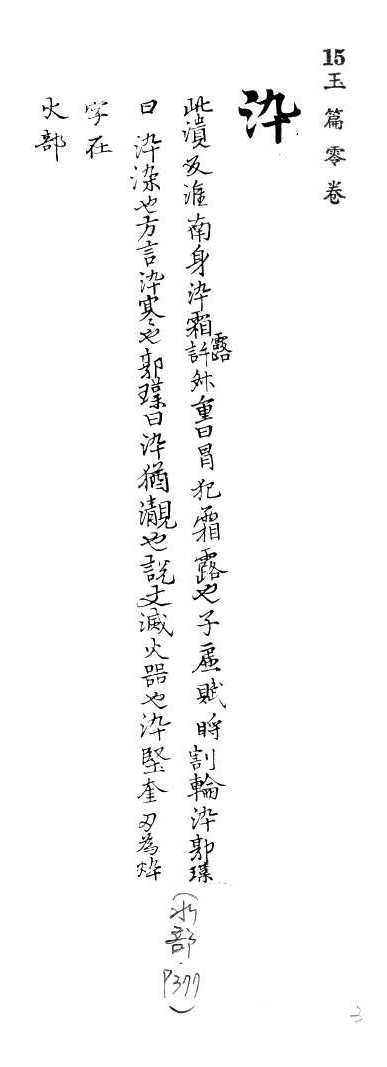 15玉篇零卷
淬
此潰反淮南身淬霜露許叔重曰冒犯霜露也子虛賦脟割輪淬郭璞
曰淬染也方言淬寒〻也郭璞曰淬猶也說文滅火器也淬堅奎刃為焠
字在
火部
(水部.P377)
3